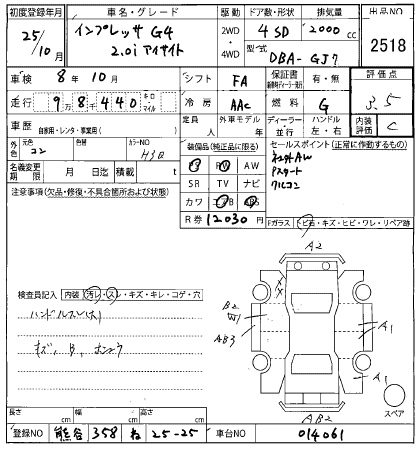 初度登録年月 車名・グレード 駆動 ドア数・形状 排気量 出品NO
25/10月 インプレッサ G4 2WD 4WD 4 SD 2000 cc 2518
2.0i アイサイト 型式 DBA-GJ7
車検 8年 10月 シフト FA 保証書 有・無 評価点
走行 9万8千440 キロ・マイル 冷房 AAC 燃料 G 3.5
車歴 自家用・レンタ・事業用( ) 定員 人 外車モデル 年 ディーラー 並行 ハンドル 左・右 内装評価 C
外色 元色 コン 色替 カラーNO H3Q 装備品(純正品に限る) セールスポイント(正常に作動するもの)
名義変更期限 月 日迄 積載 t PS PW AW
注意事項(欠品・修復・不具合箇所および状態) SR TV ナビ Pスタート
カワ エアB ABS クルコン
R券 12030円 Fガラス トビ石・キズ・ヒビ・ワレ・リペア跡
A2
検査員記入 内装 汚レ・スレ・キズ・キレ・コゲ・穴
B2
W1
ハンドルスレ(大) AB3 A1
キズ、B、
A1
スペア
長さ cm 幅 cm 高さ cm AB2
登録NO 熊谷 358 ね 25-25 車台NO 014061